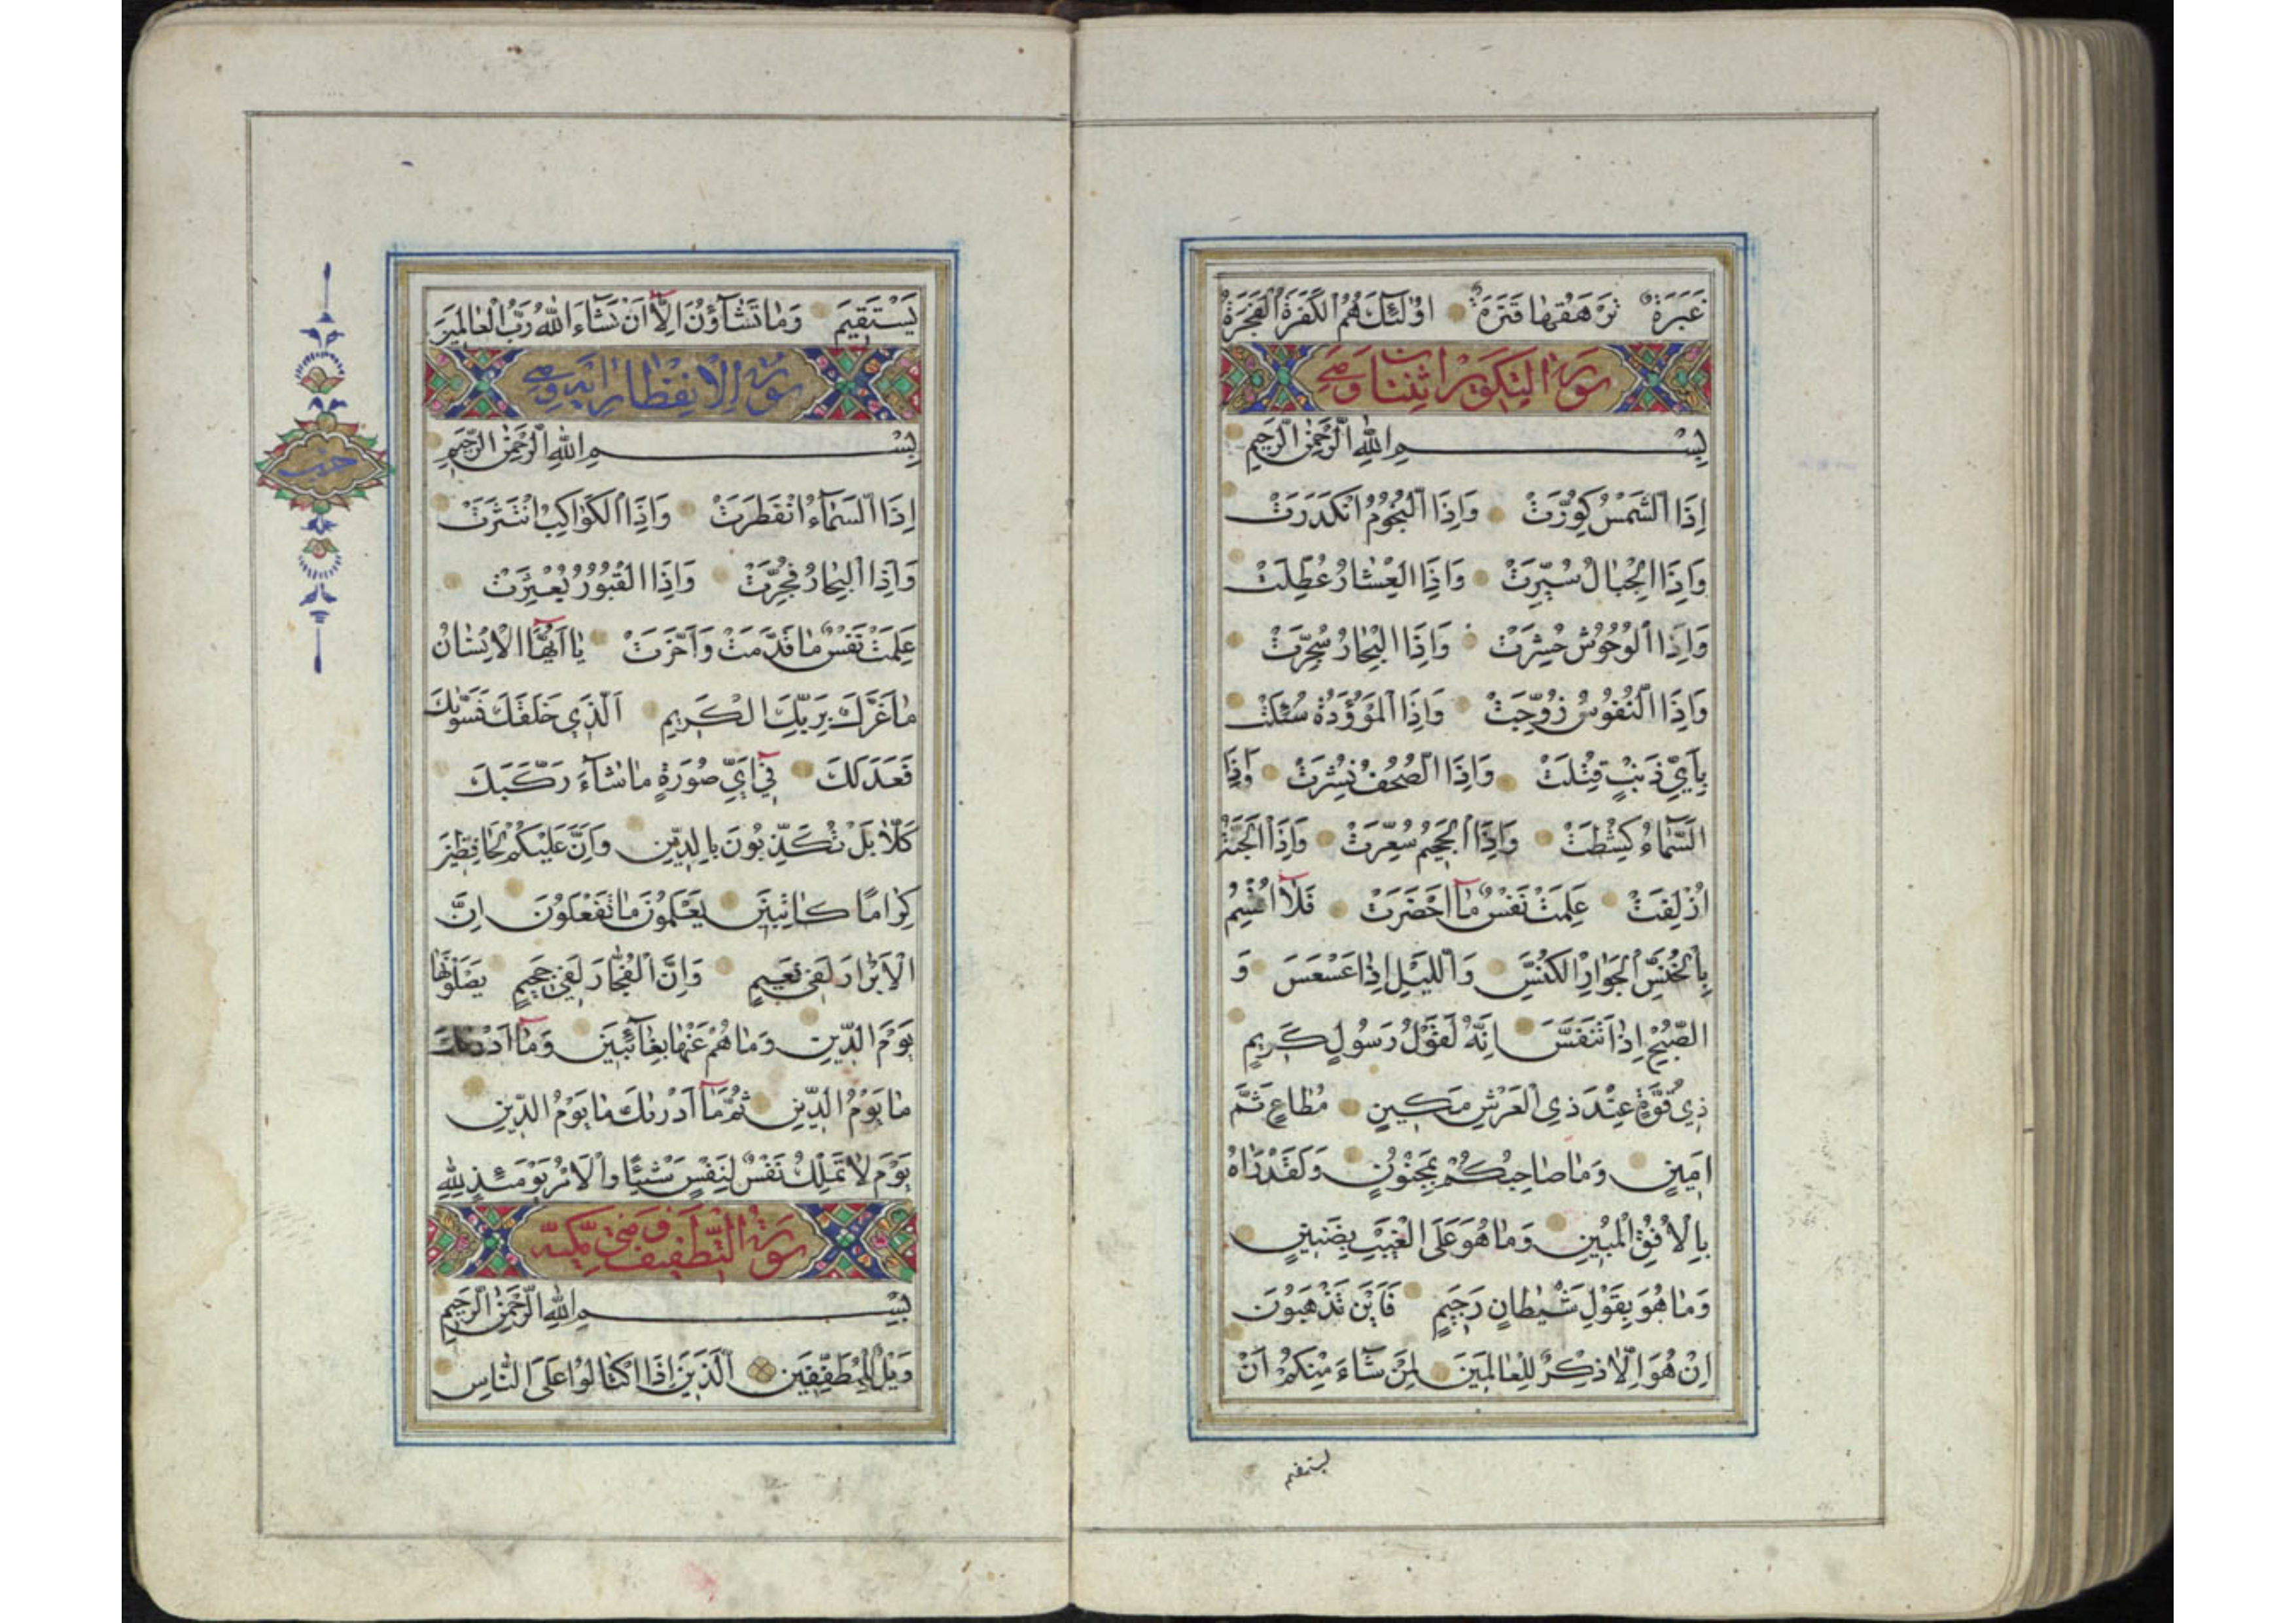 غَبَرَةٌ تَرْهَقُهَا قَتَرَةٌ اُولٰئِكَ هُمُ الْكَفَرَةُ الْفَجَرَةُ
سورة التكوير
بِسْمِ اللهِ الرَّحْمٰنِ الرَّحِيمِ
اِذَا الشَّمْسُ كُوِّرَتْ وَاِذَا النُّجُومُ انْكَدَرَتْ
وَاِذَا الْجِبَالُ سُيِّرَتْ وَاِذَا الْعِشَارُ عُطِّلَتْ
وَاِذَا الْوُحُوشُ حُشِرَتْ وَاِذَا الْبِحَارُ سُجِّرَتْ
وَاِذَا النُّفُوسُ زُوِّجَتْ وَاِذَا الْمَوْؤُدَةُ سُئِلَتْ
بِاَيِّ ذَنْبٍ قُتِلَتْ وَاِذَا الصُّحُفُ نُشِرَتْ وَاِذَا
السَّمَاءُ كُشِطَتْ وَاِذَا الْجَحِيمُ سُعِّرَتْ وَاِذَا الْجَنَّةُ
اُزْلِفَتْ عَلِمَتْ نَفْسٌ مَا اَحْضَرَتْ فَلَا اُقْسِمُ
بِالْخُنَّسِ الْجَوَارِ الْكُنَّسِ وَالَّيْلِ اِذَا عَسْعَسَ وَ
الصُّبْحِ اِذَا تَنَفَّسَ اِنَّهُ لَقَوْلُ رَسُولٍ كَرِيمٍ
ذِي قُوَّةٍ عِنْدَ ذِي الْعَرْشِ مَكِينٍ مُطَاعٍ ثَمَّ
اَمِينٍ وَمَا صَاحِبُكُمْ بِمَجْنُونٍ وَلَقَدْ رَاٰهُ
بِالْاُفُقِ الْمُبِينِ وَمَا هُوَ عَلَى الْغَيْبِ بِضَنِينٍ
وَمَا هُوَ بِقَوْلِ شَيْطَانٍ رَجِيمٍ فَاَيْنَ تَذْهَبُونَ
اِنْ هُوَ اِلَّا ذِكْرٌ لِلْعَالَمِينَ لِمَنْ شَاءَ مِنْكُمْ اَنْ
يستقيم
يَسْتَقِيمَ وَمَا تَشَاؤُنَ اِلَّا اَنْ يَشَاءَ اللهُ رَبُّ الْعَالَمِينَ
سورة الانفطار
بِسْمِ اللهِ الرَّحْمٰنِ الرَّحِيمِ
اِذَا السَّمَاءُ انْفَطَرَتْ وَاِذَا الْكَوَاكِبُ انْتَثَرَتْ
وَاِذَا الْبِحَارُ فُجِّرَتْ وَاِذَا الْقُبُورُ بُعْثِرَتْ
عَلِمَتْ نَفْسٌ مَا قَدَّمَتْ وَاَخَّرَتْ يَا اَيُّهَا الْاِنْسَانُ
مَا غَرَّكَ بِرَبِّكَ الْكَرِيمِ اَلَّذِي خَلَقَكَ فَسَوّٰيكَ
فَعَدَلَكَ فِي اَيِّ صُورَةٍ مَا شَاءَ رَكَّبَكَ
كَلَّا بَلْ تُكَذِّبُونَ بِالدِّينِ وَاِنَّ عَلَيْكُمْ لَحَافِظِينَ
كِرَامًا كَاتِبِينَ يَعْلَمُونَ مَا تَفْعَلُونَ اِنَّ
الْاَبْرَارَ لَفِي نَعِيمٍ وَاِنَّ الْفُجَّارَ لَفِي جَحِيمٍ يَصْلَوْنَهَا
يَوْمَ الدِّينِ وَمَا هُمْ عَنْهَا بِغَائِبِينَ وَمَا اَدْرٰيكَ
مَا يَوْمُ الدِّينِ ثُمَّ مَا اَدْرٰيكَ مَا يَوْمُ الدِّينِ
يَوْمَ لَا تَمْلِكُ نَفْسٌ لِنَفْسٍ شَيْئًا وَالْاَمْرُ يَوْمَئِذٍ لِلّٰهِ
سورة التطفيف
بِسْمِ اللهِ الرَّحْمٰنِ الرَّحِيمِ
وَيْلٌ لِلْمُطَفِّفِينَ اَلَّذِينَ اِذَا اكْتَالُوا عَلَى النَّاسِ
حزب